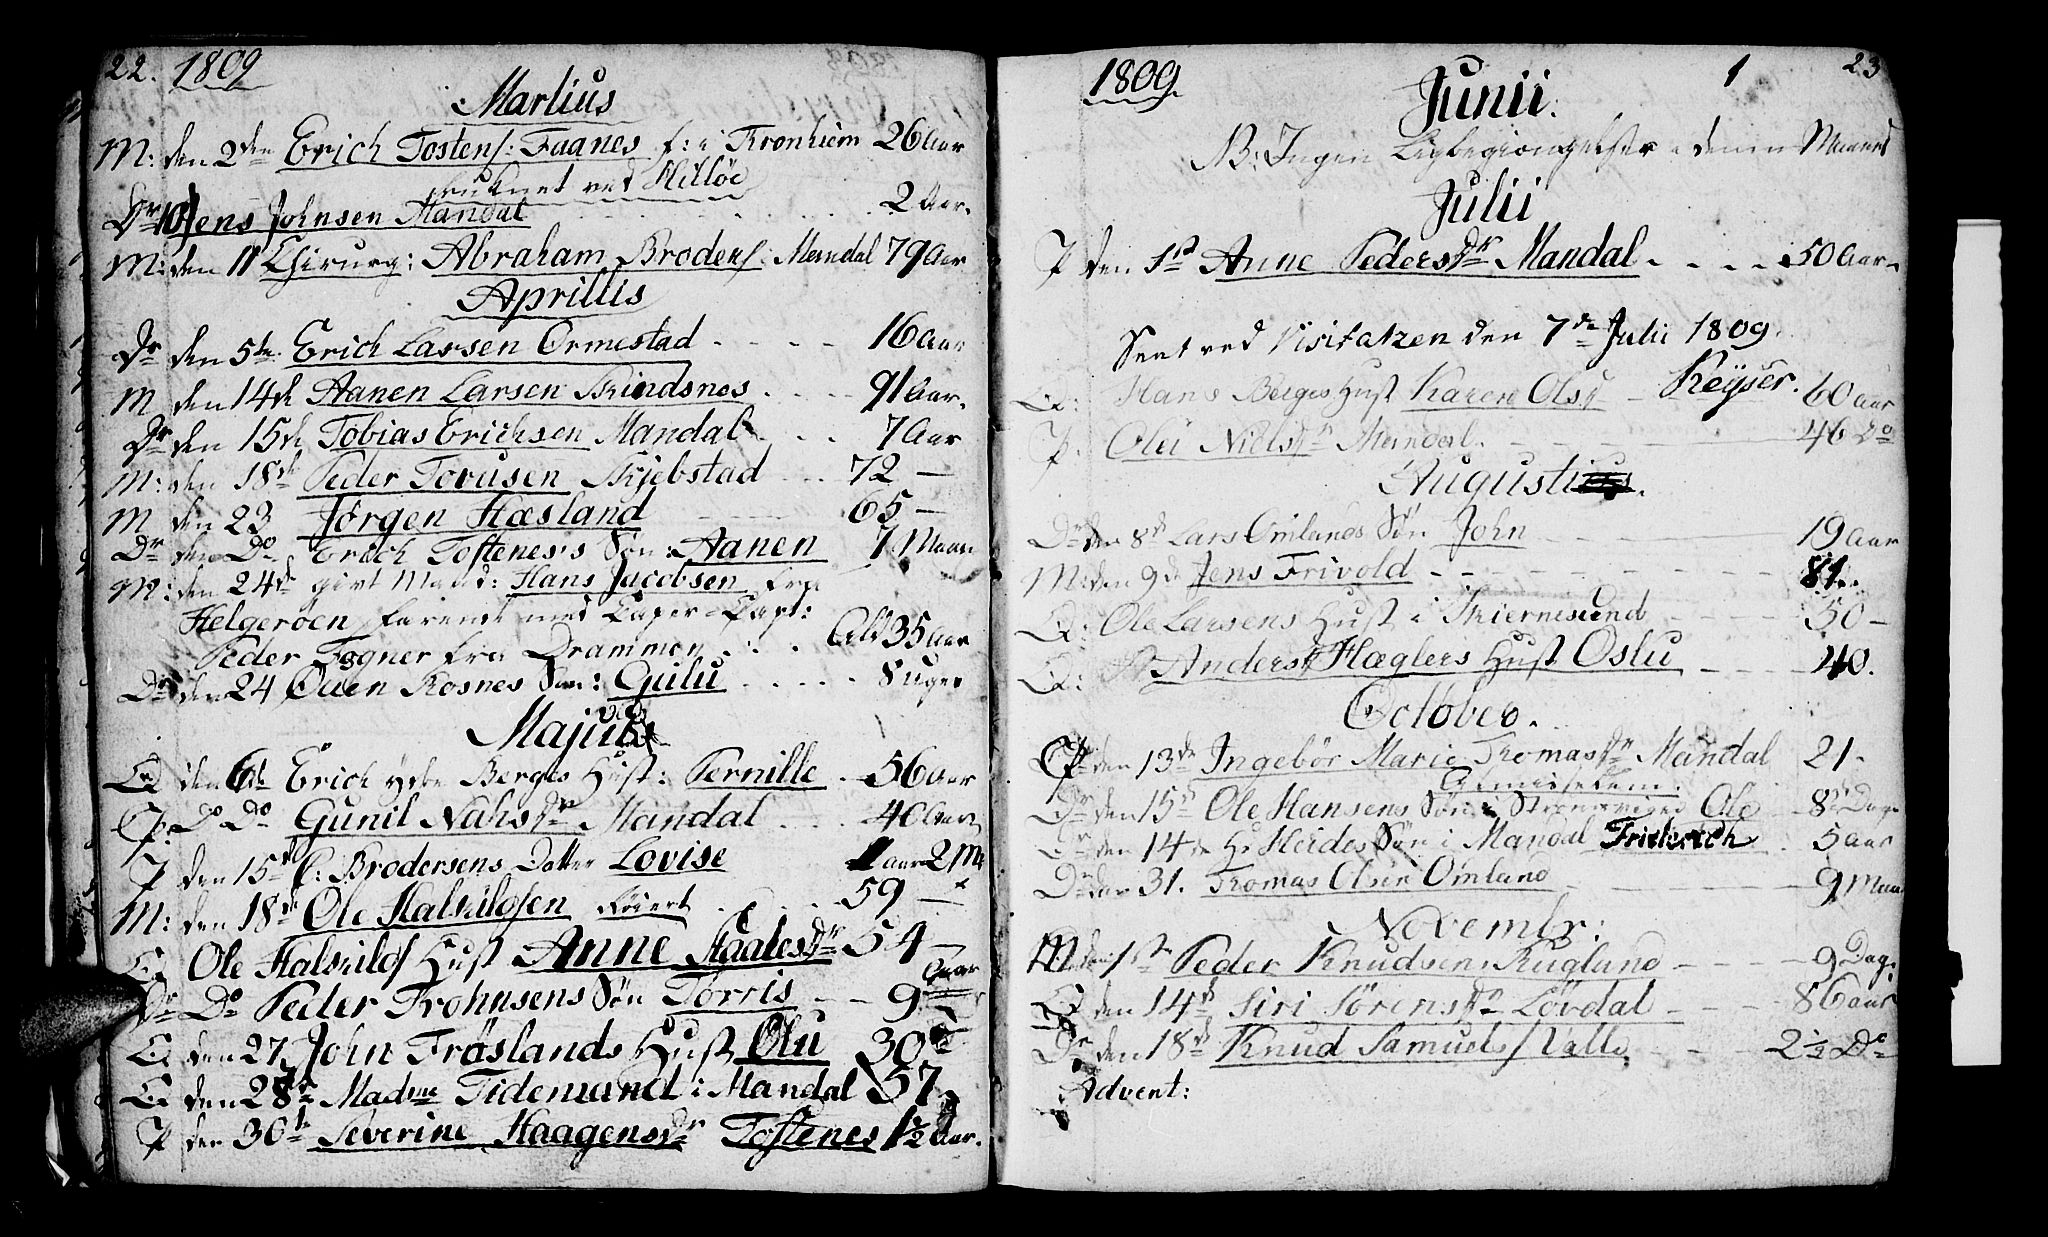 22. 1809
Martius
M: den 2den Erich Tostens: Faanes f: i Kronhiem 26 Aar
druknet ved Hitlöe
Dr 10 Jens Johnsen Mandal 2 Aar.
M: den 11 Chirurg: Abraham Broders: Mandal 79 Aar
Aprillis
Dr den 5te Erich Larsen Ormestad 16 Aar
M den 14de Aanen Larsen Skindsnes 91 Aar.
Dr den 15de Tobias Erichsen Mandal 7 Aar
M: den 18de Peder Tovusen Skjebstad 72 —
M den 23 Jörgen Hæsland 65 —
Dr den Do Erich Toftenes's Sön: Aanen 7 Maan
M: den 24de givt Mand: Hans Jacobsen fra
Helgeröen farende med Caper-Capt:
Peder Togner fra Drammen Ald 35 Aar
Dr den 24 Ouen Rosnes Sön: Gulu 8 Uger
Majus
Q den 6de Erich ydre Berges Hust: Pernille 56 Aar
Qp. Do Do Gunil Nahsdr Mandal 40 Aar
P den 15de C: Brodersens Datter Lovise 1 Aar 2 M
M: den 18de Ole Halvilds:en 59 —
Q Ole Halvilds: Hust Anne Haalesdr 54 —
Dr Do Peder Frohnsens Sön Torris 9 Aar
Q den 27 John Fröslands Hust Olu 30
Q den 28de Madme Tidemand i Mandal 57
P den 30te Severine Haagensdr Toftenes 1½ Aar.
1809. 1 23
Junii.
NB: Ingen Ligbegiængelser i denne Maaned
Julii
P den 1st Anne Pedersdr Mandal 50 Aar
Seet ved Visitatzen den 7de Julii 1809. Keyser.
Q: Hans Berges Hust Karen Olsdr 60 Aar
P. Olu Nielsdr Mandal. 46 Do
Augusti.
Dr den 8de Lars Omlands Sön John 19 Aar
M: den 9de Jens Frivold 81.
Q: Ole Larsens Hust i Skiernesund 50 —
Q: Anders Hæglers Hust Oslu 40.
October.
Qp den 13de Ingebör Marie Thomasdr Mandal 21.
Almisselem.
Dr den 15de Ole Hansens Sön i Strömsviged Ole 8 Dage
Dr den 14de Hr Heides Sön i Mandal Friderich 5 Aar
Dr den 31. Thomas Olsen Omland 9 Maan
Novembr:
M den 1ste Peder Knudsen Rugland 9 Dag.
Q den 14de Siri Sörensdr Lövdal 86 Aar
Dr den 18de Knud Samuels: Valle 2½ Do
Advent: